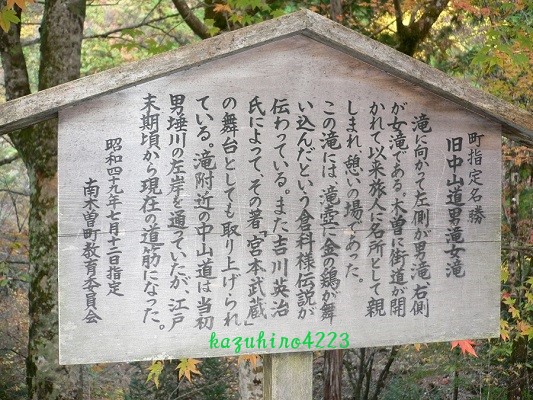 町指定名勝
旧中山道男滝女滝
滝に向かって左側が男滝、右側
が女滝である。木曽に街道が開
かれて以来旅人に名所として親
しまれ、憩いの場であった。
この滝には、滝壺に金の鶏が舞
い込んだという倉科様伝説が
伝わっている。また吉川英治
氏によって、その著「宮本武蔵」
の舞台としても取り上げられ
ている。滝附近の中山道は当初
男埵川の左岸を通っていたが、江戸
末期頃から現在の道筋になった。
昭和四十九年七月十二日指定
南木曽町教育委員会
kazuhiro4223